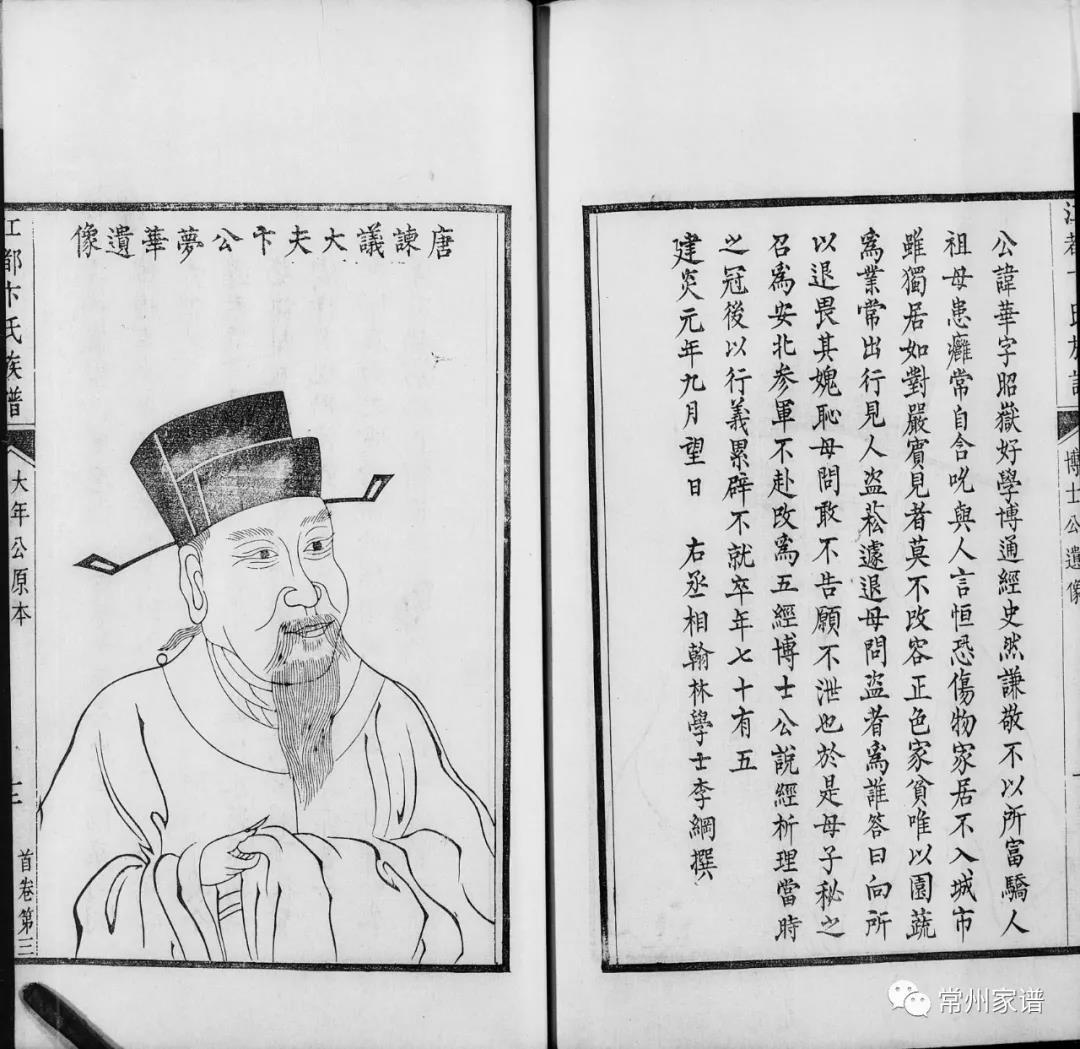 公諱華字昭嶽好學博通經史然謙敬不以所富驕人
祖母患癰常自含吮與人言恒恐傷物家居不入城市
雖獨居如對嚴賓見者莫不改容正色家貧唯以園蔬
為業常出行見人盜菘遽退母問盜者為誰答曰向所
以退畏其媿恥母問敢不告願不泄也於是母子秘之
召為安北參軍不赴改為五經博士公說經析理當時
之冠後以行義累辟不就卒年七十有五
建炎元年九月望日 右丞相翰林學士李綱撰
博士公遺像
唐諫議大夫卞公夢華遺像
江都卞氏族譜
大年公原本
首卷第三
常州家谱